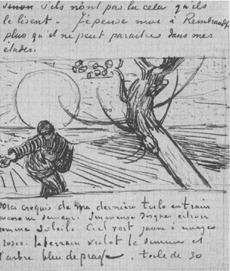 sinon s'ils n'ont pas lu cela qu'ils
le lisent. Je pense moi à Rembrandt
plus qu'il ne peut paraitre dans mes
etudes.
Voici croquis de ma dernière toile en train
encore un semeur. Immense disque citron
comme soleil. Ciel vert jaune à nuages
roses. le terrain violet le semeur et
l'arbre bleu de prusse. toile de 30